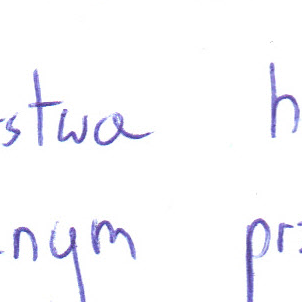 stwa h
nym prz